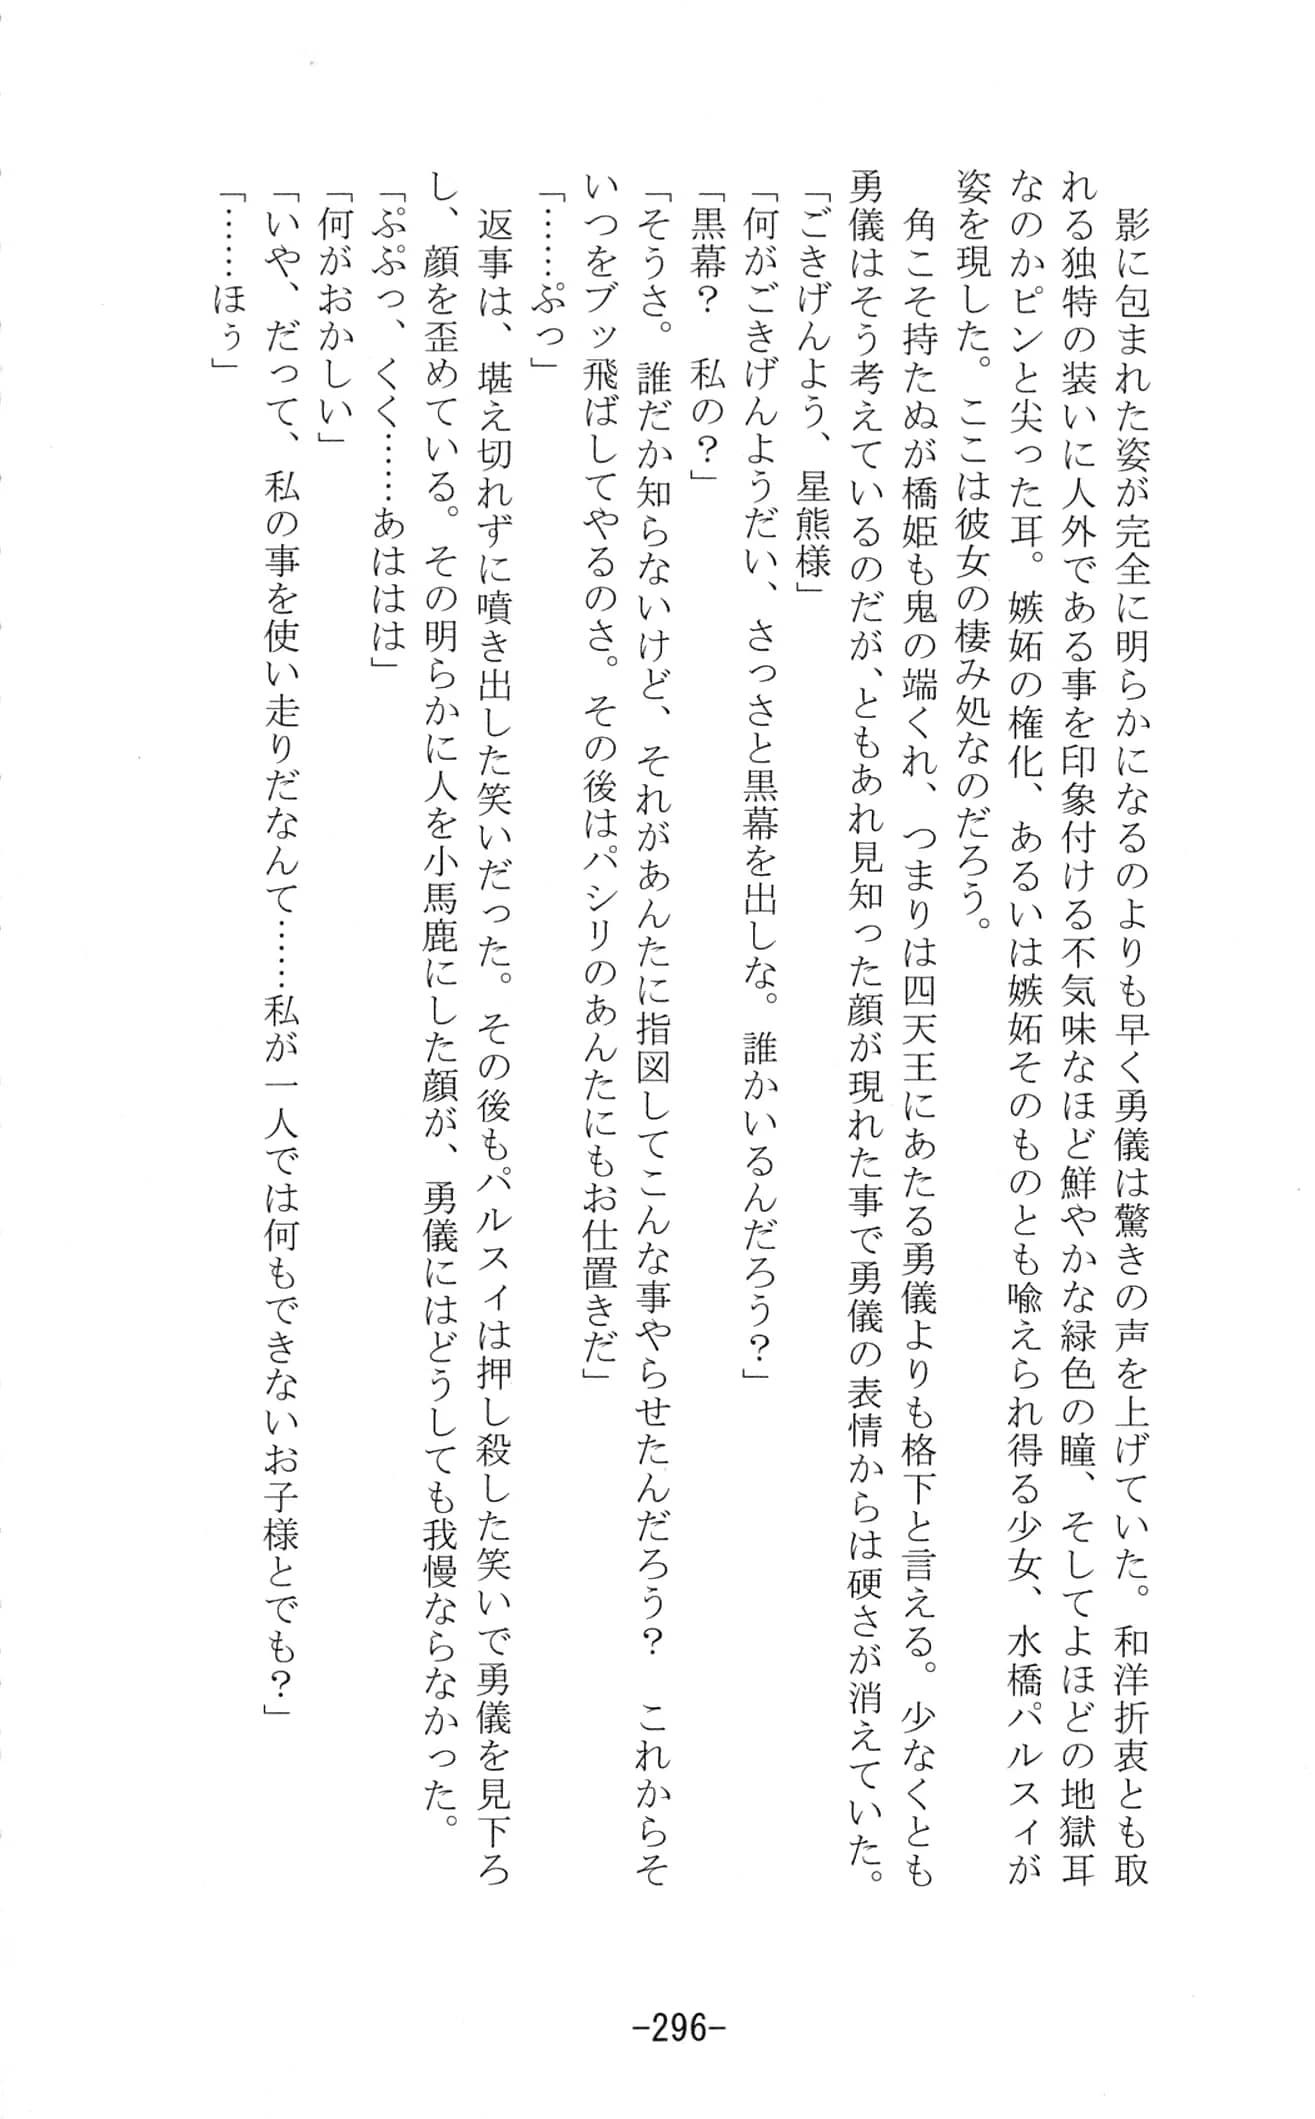 影に包まれた姿が完全に明らかになるのよりも早く勇儀は驚きの声を上げていた。和洋折衷とも取
れる独特の装いに人外である事を印象付ける不気味なほど鮮やかな緑色の瞳、そしてよほどの地獄耳
なのかピンと尖った耳。嫉妬の権化、あるいは嫉妬そのものとも喩えられ得る少女、水橋パルスィが
姿を現した。ここは彼女の棲み処なのだろう。
角こそ持たぬが橋姫も鬼の端くれ、つまりは四天王にあたる勇儀よりも格下と言える。少なくとも
勇儀はそう考えているのだが、ともあれ見知った顔が現れた事で勇儀の表情からは硬さが消えていた。
「ごきげんよう、星熊様」
「何がごきげんようだい、さっさと黒幕を出しな。誰かいるんだろう？」
「黒幕？　私の？」
「そうさ。誰だか知らないけど、それがあんたに指図してこんな事やらせたんだろう？　これからそ
いつをブッ飛ばしてやるのさ。その後はパシリのあんたにもお仕置きだ」
「……ぷっ」
返事は、堪え切れずに噴き出した笑いだった。その後もパルスィは押し殺した笑いで勇儀を見下ろ
し、顔を歪めている。その明らかに人を小馬鹿にした顔が、勇儀にはどうしても我慢ならなかった。
「ぷぷっ、くく……あははは」
「何がおかしい」
「いや、だって、私の事を使い走りだなんて……私が一人では何もできないお子様とでも？」
「……ほぅ」
-296-